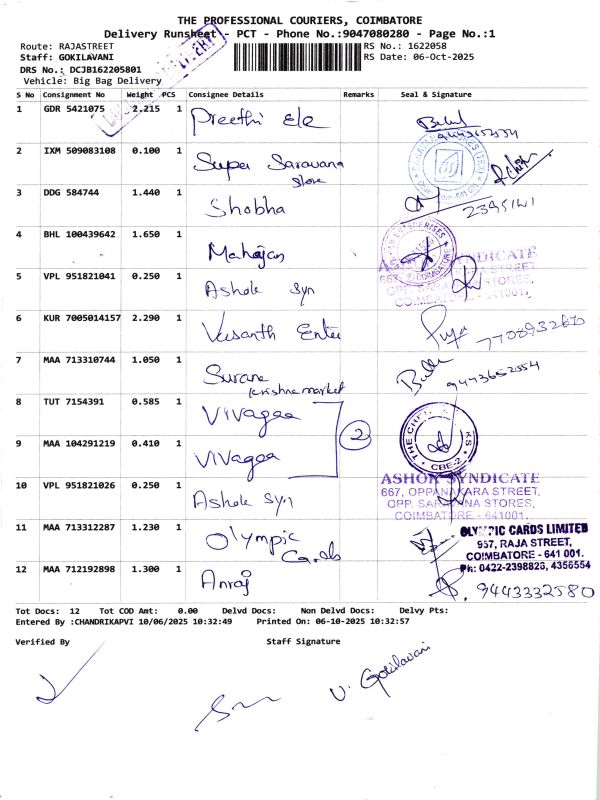 THE PROFESSIONAL COURIERS, COIMBATORE
Delivery Runsheet - PCT - Phone No.:9047080280 - Page No.:1
Route: RAJASTREET
RS No.: 1622058
Staff: GOKILAVANI
RS Date: 06-Oct-2025
DRS No.: DCJB162205801
Vehicle: Big Bag Delivery
S No Consignment No Weight PCS Consignee Details Remarks Seal & Signature
1 GDR 5421075 2.215 1 Preethi Ele
2 IXM 509083108 0.100 1 Super Saravana
Store
3 DDG 584744 1.440 1 Shobha 2395141
4 BHL 100439642 1.650 1 Mahajan
ASHOK SYNDICATE
667, OPPANAKARA STREET,
OPP. SARAVANA STORES,
COIMBATORE - 641001.
5 VPL 951821041 0.250 1 Ashok Syn
6 KUR 7005014157 2.290 1 Vasanth Enter
7 MAA 713310744 1.050 1 Surana
krishna market
8 TUT 7154391 0.585 1 Vivagaa
2
THE CHE KS
CBE-2
9 MAA 104291219 0.410 1 Vivagaa
10 VPL 951821026 0.250 1 Ashok Syn
ASHOK SYNDICATE
667, OPPANAKARA STREET,
OPP. SARAVANA STORES,
COIMBATORE - 641001.
11 MAA 713312287 1.230 1 Olympic
Cards
OLYMPIC CARDS LIMITED
957, RAJA STREET,
COIMBATORE - 641 001.
Ph: 0422-2398826, 4356554
12 MAA 712192898 1.300 1 Anraj 9443332580
Tot Docs: 12 Tot COD Amt: 0.00 Delvd Docs: Non Delvd Docs: Delvy Pts:
Entered By :CHANDRIKAPVI 10/06/2025 10:32:49 Printed On: 06-10-2025 10:32:57
Verified By Staff Signature
V. Gokilavani